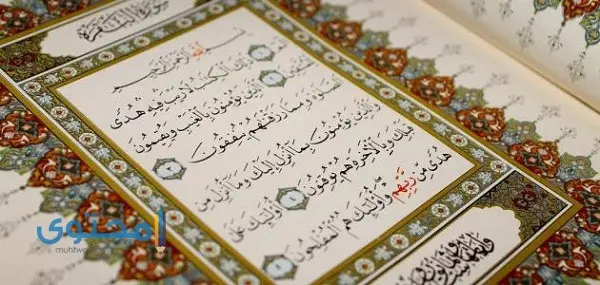 سورة البقرة
بسم الله الرحمن الرحيم
ذلك الكتب لا ريب فيه هدى
الذين يؤمنون بالغيب ويقيمون
ومما رزقنهم ينفقون
والذين يؤمنون بما أنزل إليك وما أنزل من
قبلك وبالآخرة هم يوقنون أولئك على
هدى من ربهم وأولئك هم المفلحون
محتوى
muhtwa